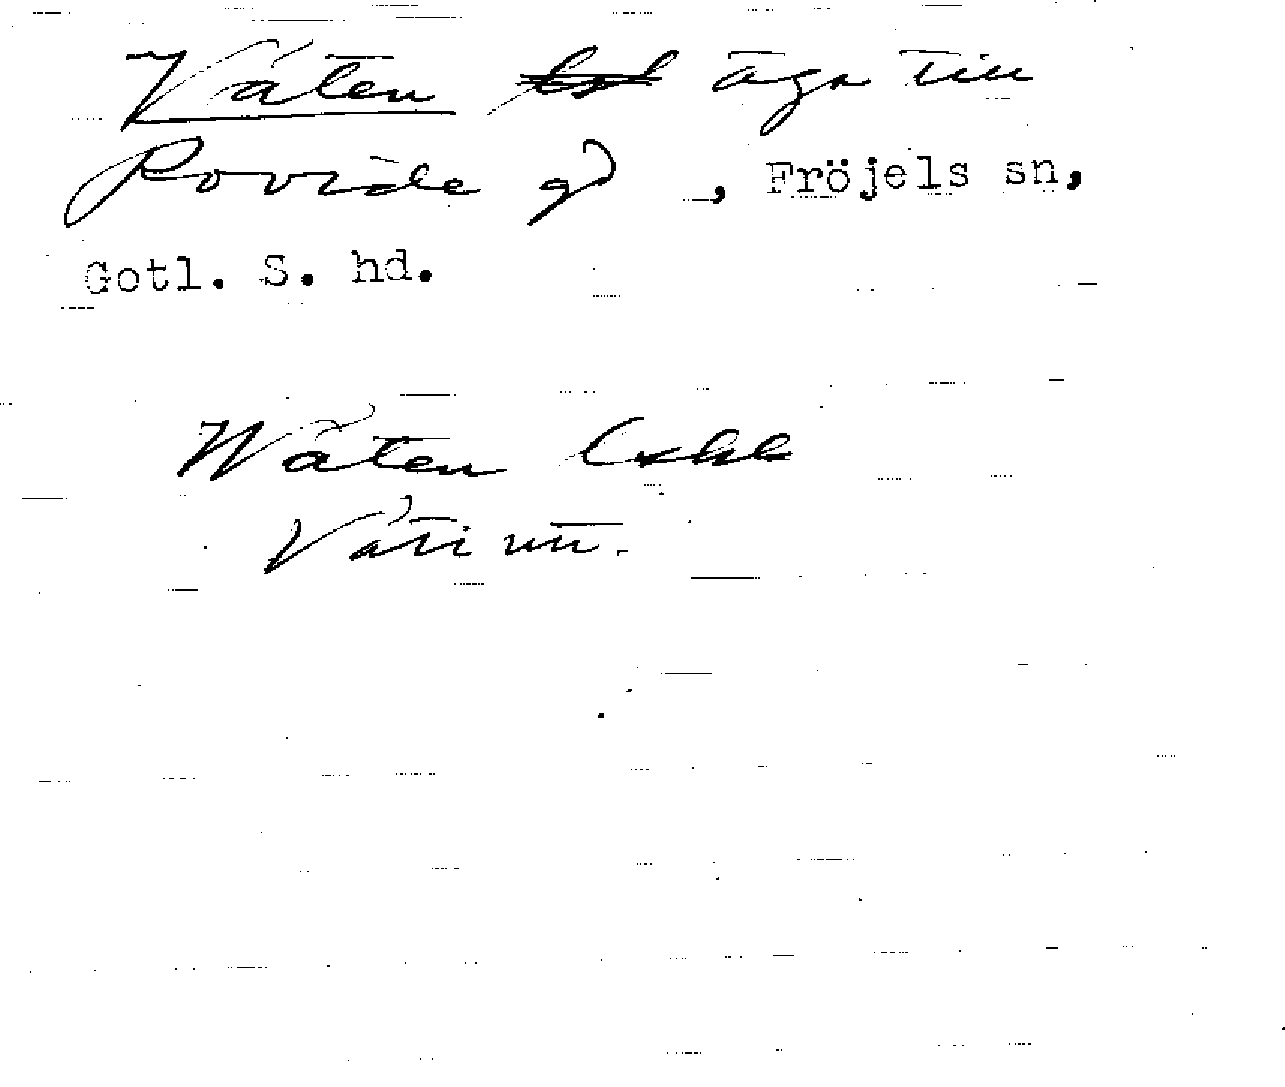 Våten äga till
Rovide gd, Fröjels sn,
Gotl. S. hd.
Wåten Lskk